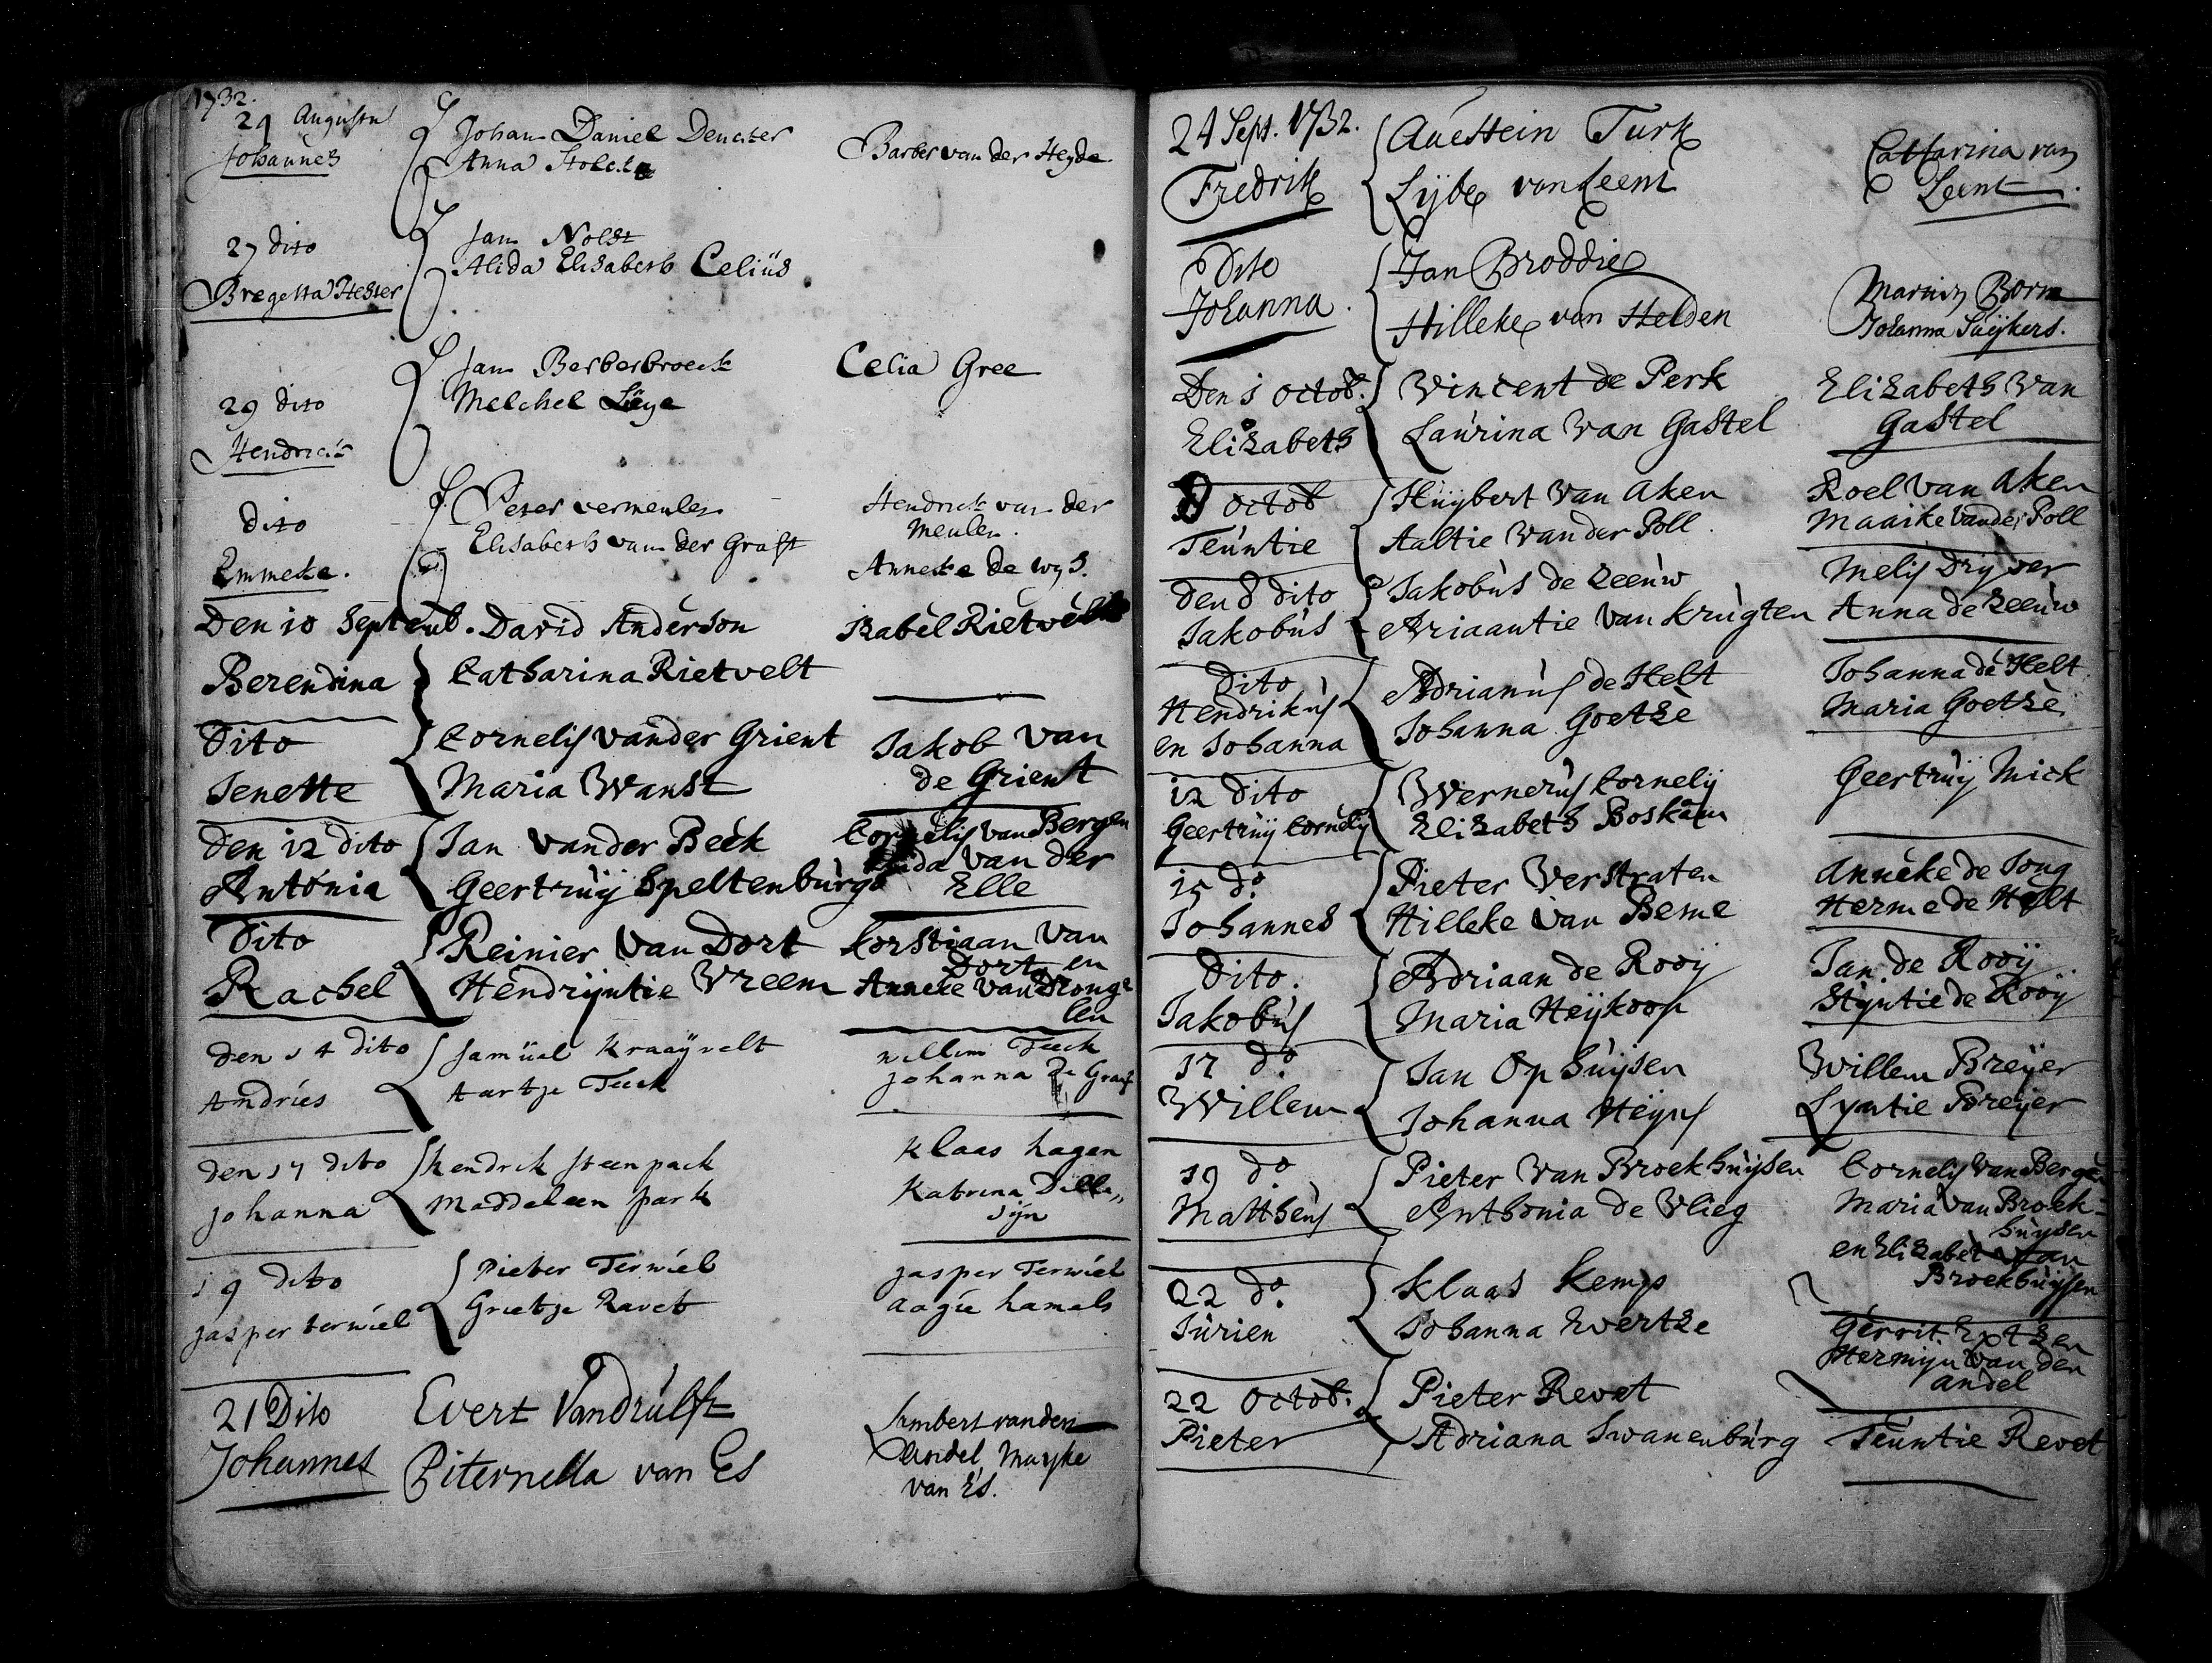 1732.
24 Augustus
Johannes
Johan Daniel Deuster
Anna
Barber van der Heyde
27 dito
Bregetta Hester
Jan Noldt
Alida Elisabeth Celiüs
29 dito
Hendrick
Jan Berberbroeck
Melchel
Celia Gree
dito
Emmeke.
Peter vermeulen
Elisabeth van der Graft
Hendrick van der
meulen.
Anneke de wys.
Den 10 Septemb.
Berendina
David Anderson
Catharina Rietvelt
Izabel Rietvelt
Dito
Jenette
Cornelis vander Grient
Maria Wanst
Jakob van
de Grient
den 12 dito
Antonia
Jan vander Beek
Geertruij Speltenburg
Cornelis van Bergen
van der
Elle
Dito
Rachel
Reinier van Dort
Hendrijntie Vreem
Korstiaan van
Dort en
Anneke van Drong
len
den 14 dito
Andries
Samüel Kraaÿvelt
Aartje Tuck
willem Tuck
johanna de Graaf
den 17 dito
johanna
hendrick steenpack
Maddeleen park
Klaas hagen
Katrina Delle,,
sijn
19 dito
jasper terwiel
Pieter Terwiel
Grietje Ravet
jasper Terwiel
aagie hamels
21 Dito
Johannes
Evert Vandrulft
Piternella van Es
Lambert vanden
Andel Mayke
van Es.
24 Sept. 1732.
Fredrik
Auestein Turk
Lijbe van Leent
Catharina van
Leent
Dito
Johanna.
Jan Broddie
Hilleke van Helden
Martin Borm
Johanna Suijkers.
Den 1 octob.
Elizabeth
Vincent de Perk
Laurina van Gastel
Elizabeth van
Gastel
8 octob
Teuntie
Huijbert van Aken
Aaltie van der Poll
Roel van Aken
Maaike vander Poll
den 8 dito
Jakobus
Jakobus de Zeeuw
Ariaantie van Krugten
Melis Drijver
Anna de Zeeuw
Dito
Hendrikus
en Johanna
Adrianus de Helt
Johanna Goetze
Johanna de Helt
Maria Goetze
12 dito
Geertruij Cornelij
Wernerus Cornelij
Elizabeth Boskam
Geertruij Mick
15 do
Johannes
Pieter Verstraten
Hilleke van Beme
Anneke de Jong
Herme de Helt
Dito.
Jakobus
Adriaan de Rooij
Maria Heijkoop
Jan de Rooij
Stijntie de Rooij
17 do
Willem
Jan Ophuijsen
Johanna Heijns
Willem Breijer
Lyntie Breijer
19 do
Mattheus
Pieter van Broekhuijsen
Anthonia de Vlieg
Cornelis van Bergen
Maria van Broek=
huijsen
en Elizabet van
Broekhuijsen
22 do
Jurien
Klaas Kemp
Johanna Evertze
Gerrit Evertzen
Hermijn van den
andel
22 Octob.
Pieter
Pieter Revet
Adriana Swanenburg
Teuntie Revet